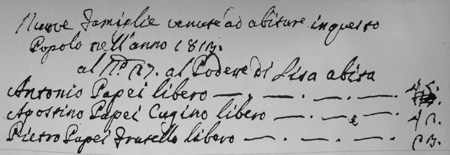 Nuove famiglie venute ad abitare in questo
Popolo nell'anno 1813.
al N.º 17. al Podere di Lisa abita
Antonio Papei libero
Agostino Papei Cugino libero
Pietro Papei fratello libero